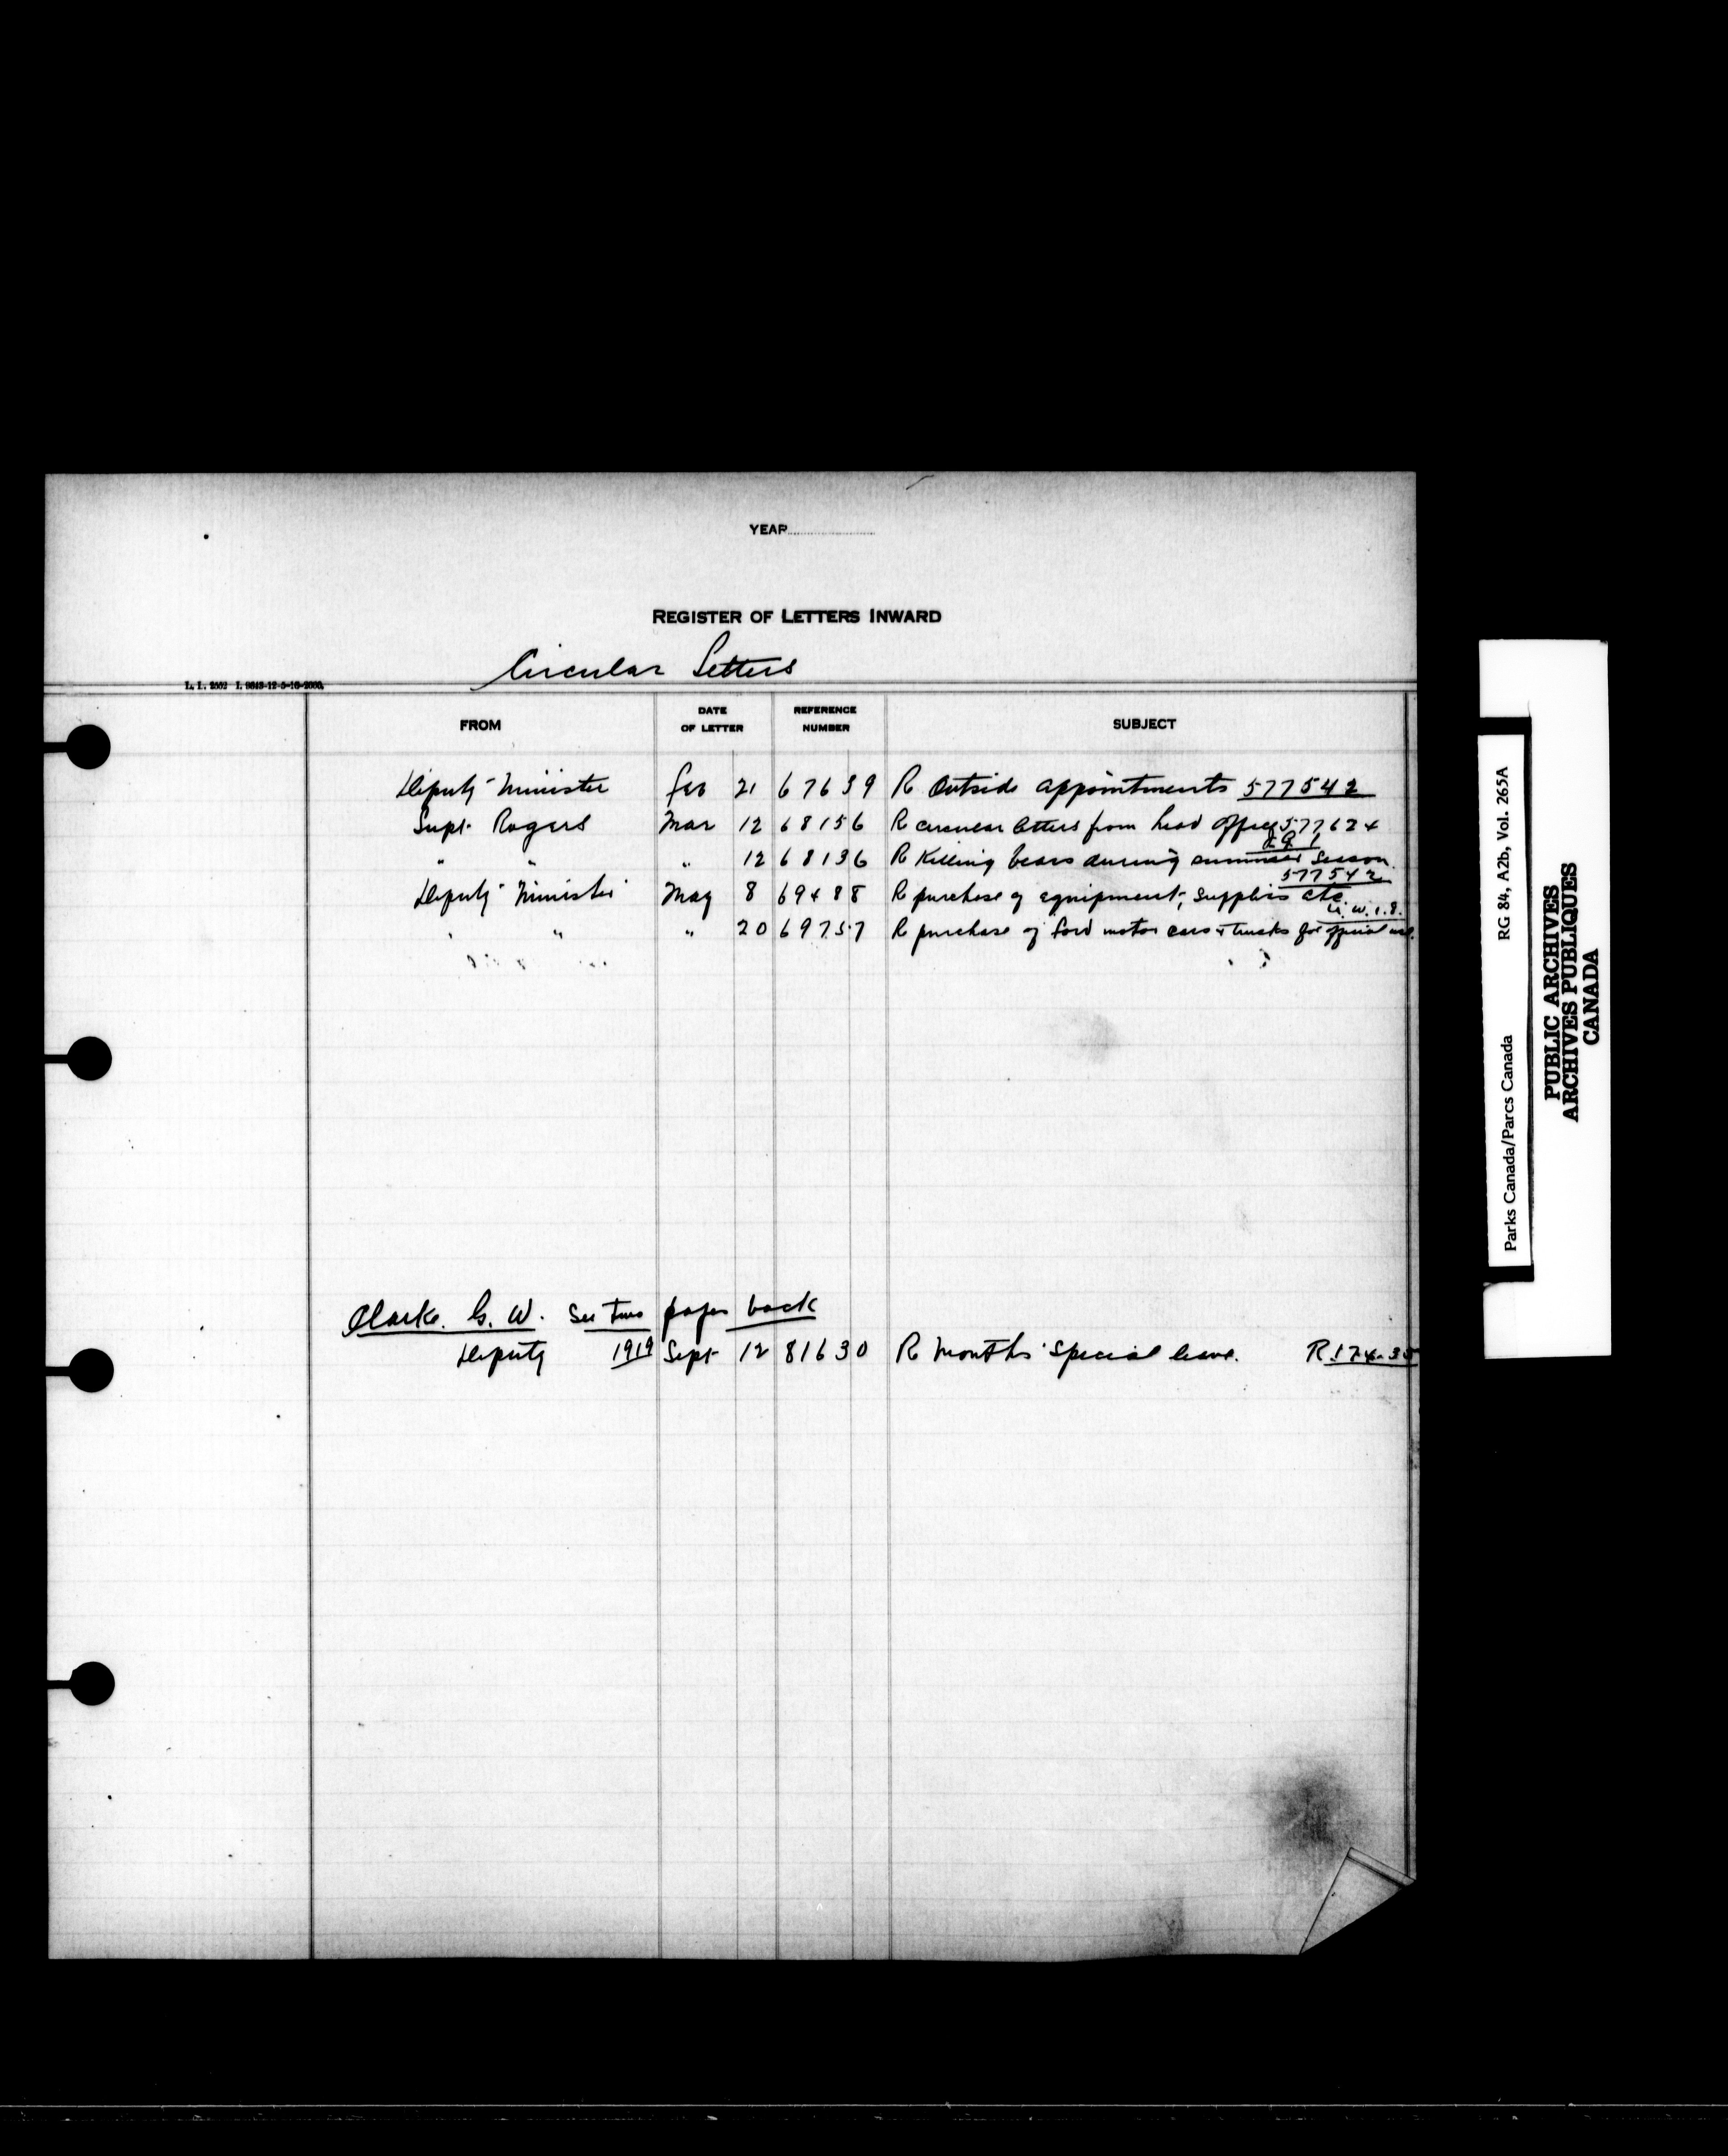 YEAR
REGISTER OF LETTERS INWARD
Circular Letters
L. I. 2552 I. 9843-12-5-16-2000.
FROM DATE OF LETTER REFERENCE NUMBER SUBJECT
Deputy Minister Feb 21 67639 R Outside appointments 577542
Supt. Rogers Mar 12 68156 R circular letters from head office 577624
" " " 12 68136 R Killing bears during summer season.
577542
Deputy Minister May 8 69488 R purchase of equipment, supplies etc.
U.W.1.8.
" " " 20 69757 R purchase of ford motor cars & trucks for official use.
Clarke. G. W. See two pages back
Deputy 1919 Sept 12 81630 R months special leave. R.174-35
Parks Canada/Parcs Canada RG 84, A2b, Vol. 265A
PUBLIC ARCHIVES
ARCHIVES PUBLIQUES
CANADA